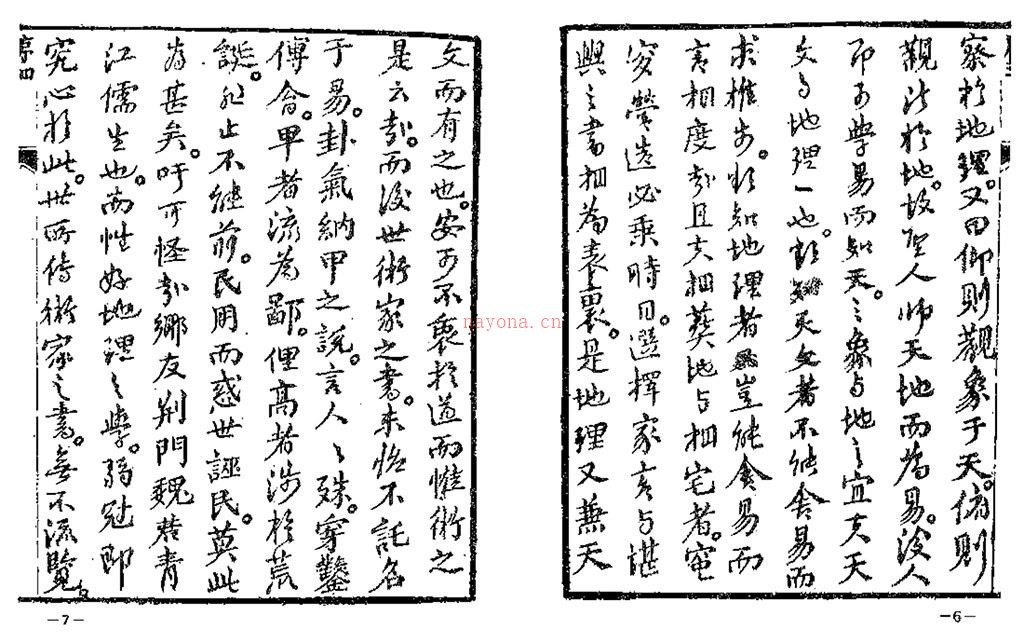 察於地理。又曰仰則觀象于天。俯則
觀法於地。故聖人師天地而為易。後人
即可學易而知天。之象与地之宜夫天
文与地理一也。欲知天文者不能舍易而
求推步。欲知地理者豈能舍易而
言相度哉且夫相葬地与相宅者。窀
穸營造必乘時日。選擇家言与堪
輿之書相為表裏。是地理又兼天
文而有之也。安可不衷於道而惟術之
是云哉。而後世術家之書。未始不託名
于易。卦氣納甲之說。言人人殊。穿鑿
傅會。卑者流為鄙。俚高者涉於荒
誕。不止不継前。民用而惑世誣民。莫此
為甚矣。吁可怪哉鄉友荆門魏青
江儒生也。而性好地理之學。弱冠即
究心於此。世所傳術家之書。無不流覽。
序四
nayona.cn
—7—
—6—